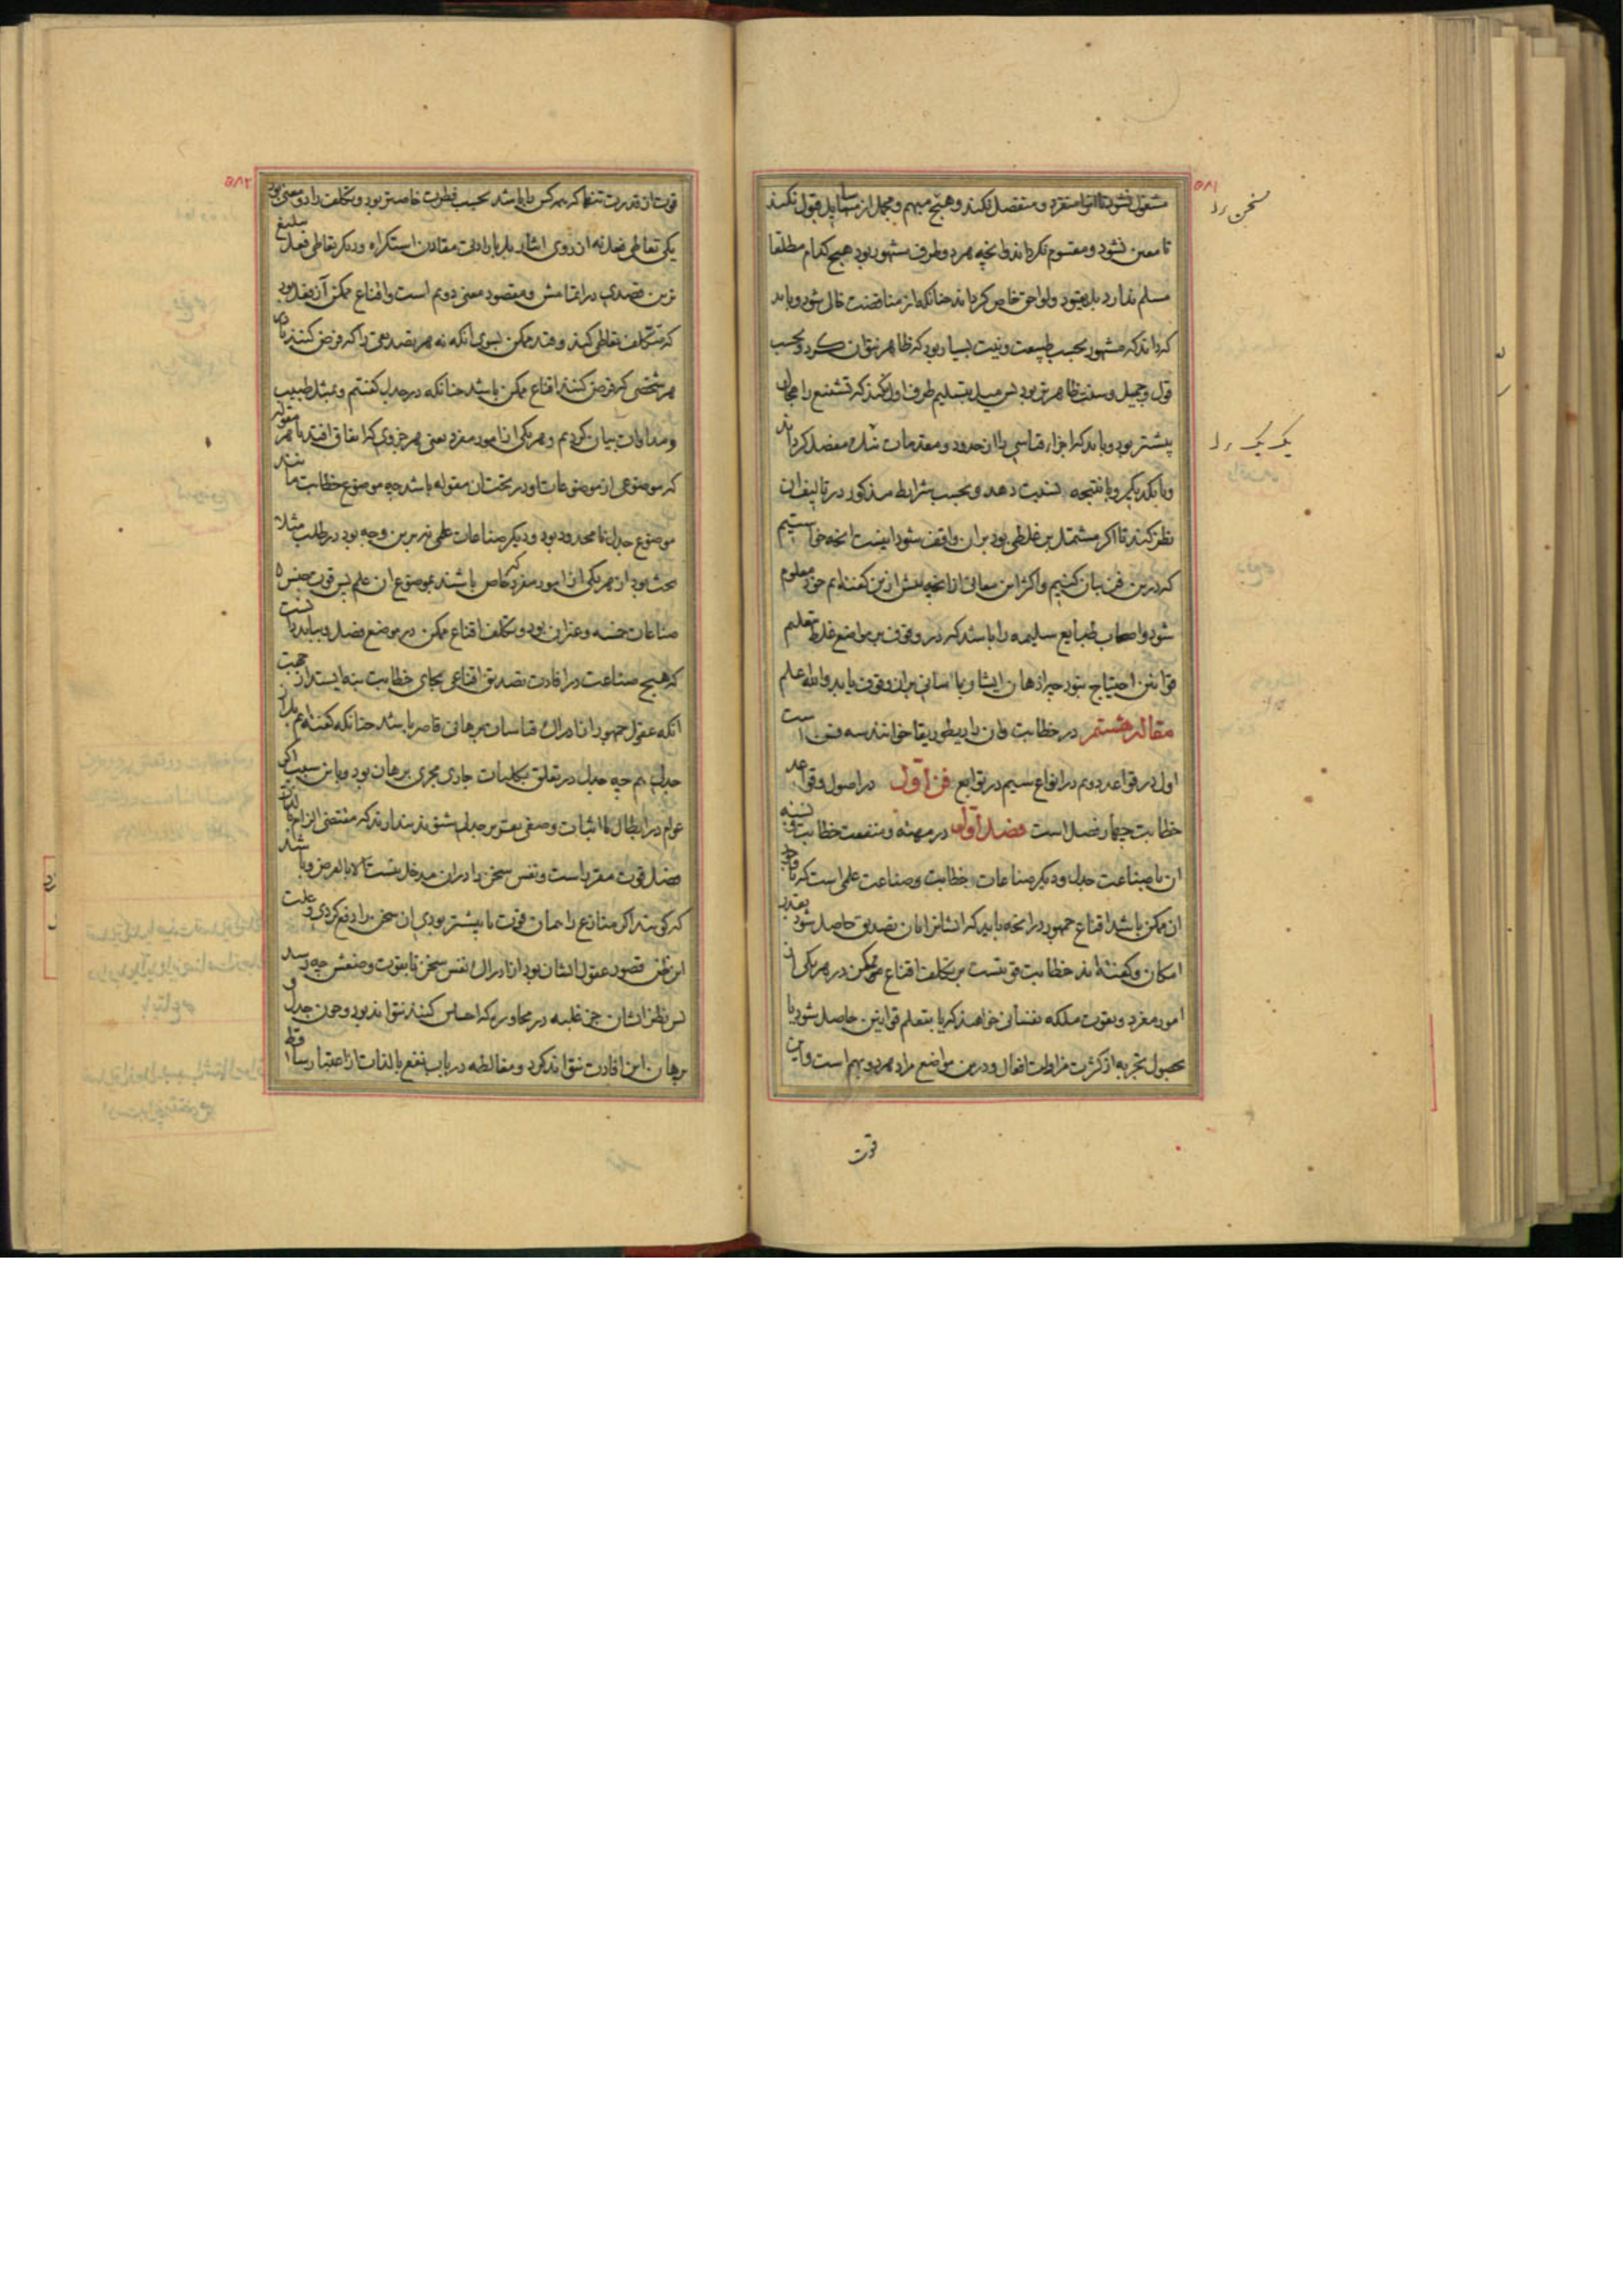 ۵۸۱
سخن را
مشغول نشود تا انرا منفرد و منفصل نکند و هیچ مبهم و مجمل از مسایل قبول نکند
تا معین نشود و مقسوم نکرداند وانچه هر دو طرف مشهور بود هیچ کدام مطلقا
مسلم ندارد بل بقیود ولواحق خاص کرداند چنانکه از مناقضت خالی شود و باید
که داند که مشهور بحسب طبیعت و نیت بسیار بود که ظاهر نتوان کرد و بحسب
قول وجمیل و سنت ظاهرتر بود پس میل بتسلیم طرف اول نکند که تشنیع را مجال
بیشتر بود و باید که اجزاء قیاس را از حدود و مقدمات مفصل کرداند
یک یک را
و با یکدیکر و با نتیجه نسبت دهد و بحسب شرایط مذکور در تالیف ان
نظر کند تا اکر مشتمل بر غلطی بود بران واقف شود اینست انچه خواستیم
که درین فن بیان کنیم واکثر این معانی از انچه پیش ازین کفته ایم خود معلوم
شود واصحاب طبایع سلیمه را باشد که در وقوف بر مواضع غلط بتعلم
قوانین احتیاج نبود چه اذهان ایشان باسانی بران وقوف یابد والله اعلم
مقالۀ هشتم در خطابت وان را ریطوریقا خوانند سه فن است
اول در قواعد دوم در انواع سیم در توابع فن اول در اصول و قواعد
خطابت چهار فصل است فصل اول در مهیة و منفعت خطابت و نسبة
ان با صناعت جدل و دیکر صناعات خطابت و صناعت علمی است که با وجود
ان ممکن باشد اقناع جمهور در انچه باید که ایشانرا بان تصدیق حاصل شود بقدر
امکان و کفته اند خطابت قوتیست بر تکلف اقناع ممکن در هر یکی از
امور مفرد و بقوت ملکه نفسانی خواهند که یا بتعلم قوانین حاصل شود یا
بحصول تجربه از کثرت مزاولت افعال و درین مواضع مراد هر دو بهم است و این
قوت
۵۸۲
قوت ان قدرت تنها که هر کس را باشد بحسب فطرت خاصتر بود و تکلف را دو معنی بود
یکی تعاطی فعل نه از روی ایثار بل بارادتی مقارن استکراه و دیکر تعاطی فعل ببلیغ
ترین قصدی در اتمامش و مقصود معنی دوم است واقناع ممکن آنقدر بود
که متکلف تعاطی کند و قید ممکن بسوی انکه نه هر تصدیقی را که فرض کنند با
هر شخصی که فرض کنند اقناع ممکن باشد چنانکه در جدل کفتیم و بمثل طبیب
و مداوات بیان کردیم و هر یکی از امور مفرد یعنی هر جزوی که اتفاق افتد با هر مقوله
که موضوعی از موضوعات او در تحت ان مقوله باشد چه موضوع خطابت مانند
موضوع جدل نامحدود بود و دیکر صناعات علمی نه برین وجه بود در طب مثلا
بحث بود از هر یکی از امور مفرد که خاص باشند بموضوع ان علم پس قوت جنس
صناعات خمسه وغیر ان بود و تکلف اقناع ممکن در موضع فصل و بباید دانست
که هیچ صناعت در افادت تصدیق اقناعی بجای خطابت نه ایستد از جهت
انکه عقول جمهور از ادراک قیاسات برهانی قاصر باشد چنانکه کفته ایم بل از
جدلی هم چه جدل در تعلق بکلیات جاری مجری برهان بود و باین سبب اکثر
عوام در ابطال یا اثبات وصفی بقوتر جدلی مشنق نه پندارند که مقتضی الزام بالذات
فضل قوت مقرر است و نفس سخن را دران مدخل نیست الا بالعرض و باشد
که کویند اکر منازع را همان قوت یا بیشتر بودی ان سخن را دفع کردی و علت
این ظن قصور عقول ایشان بود از ادراک نفس سخن تا بقوت و ضعفش چه رسد
پس نظر ایشان جز غلبه در محاوره که احساس کنند نتواند بود و چون جدل و
برهان این افادت نتواند کرد و مغالطه در باب نفع بالذات از اعتبار ساقط